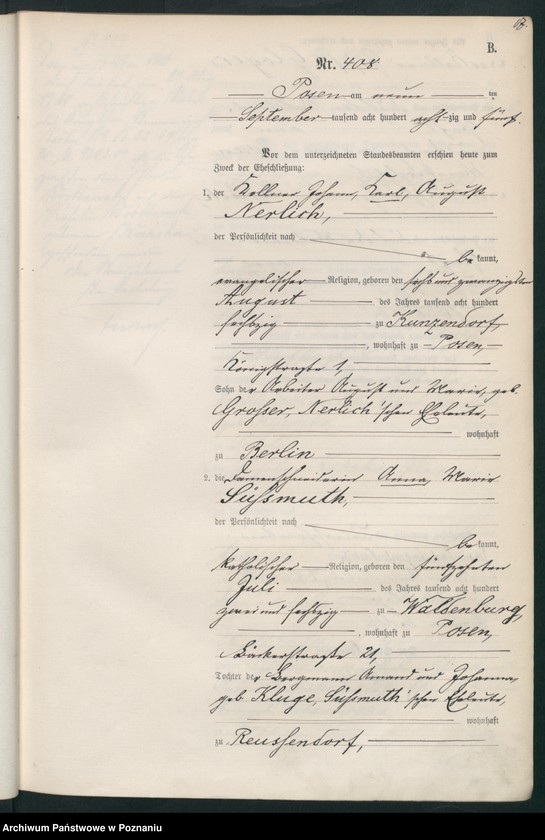 B.
Nr. 408
Posen am neun ten
September tausend acht hundert acht zig und fünf.
Vor dem unterzeichneten Standesbeamten erschien heute zum
Zweck der Eheschließung:
1. der Kellner Johann, Karl, August
Nerlich,
der Persönlichkeit nach
be kannt,
evangelischer Religion, geboren den sechs und zwanzigsten
August des Jahres tausend acht hundert
sechszig zu Kunzendorf,
, wohnhaft zu Posen,
Königstraße 1,
Sohn der Arbeiter August und Marie, geb.
Grosser, Nerlich'schen Eheleute,
wohnhaft
zu Berlin
2. die Damenschneiderin Anna, Marie
Süssmuth,
der Persönlichkeit nach
be kannt,
katholischer Religion, geboren den fünfzehnten
Juli des Jahres tausend acht hundert
zwei und sechszig zu Waldenburg,
, wohnhaft zu Posen,
Bäckerstraße 21,
Tochter der Bergmann Amand und Johanna,
geb Kluge, Süssmuth'schen Eheleute,
wohnhaft
zu Reussendorf,
Archiwum Państwowe w Poznaniu